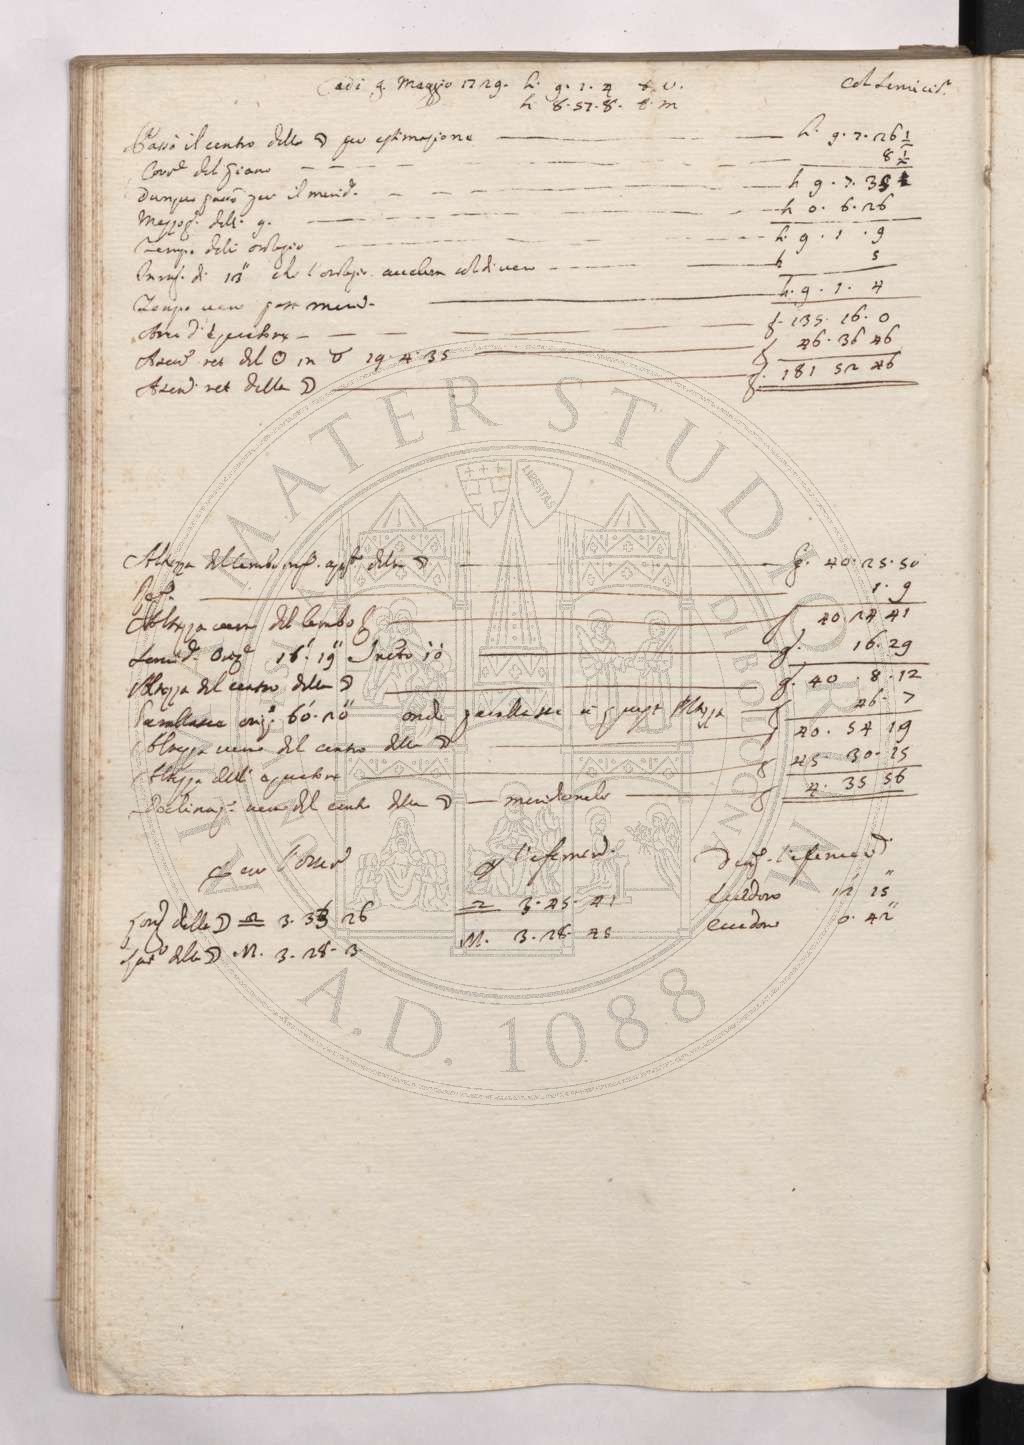 adi 9. Maggio 1729. h. 9. 1. 4 t. v.
h 8. 57. 8. t. m
Col Semicir.
Passò il centro della ☽ per estimazione h. 9. 7. 26 1/2
Corr.e del piano 8 1/2
Dunque passò per il merid. h 9. 7. 35
Mezzog. dell' h 0. 6. 26
Tempo dell' orologio h. 9. 1. 9
di 13" che l'orologio h 5
Tempo vero post merid. h. 9. 1. 4
Arco d'equatore g. 135. 16. 0
Ascen. ret del ☉ in ♉ 19. 4. 35 g 46. 36 46
Ascen. ret della ☽ g. 181 52 46
Altezza del lembo inf. app. della ☽ g. 40. 25. 50
Ref. 1. 9
Altezza vera del lembo g 40. 24 41
Semid. Oriz. 16'. 19" Incr.to 10" g. 16. 29
Altezza del centro della ☽ g. 40. 8. 12
Parallasse oriz. 60'. 20" onde parallasse a quest'Altezza 46. 7
Altezza vera del centro della ☽ g 40. 54 19
Altezza dell' equatore g 45. 30. 15
Declinaz. vera del centro della ☽ meridionale g 4. 35 56
l'Osser. p l'efemerid. l'efemerid.
long. della ☽ ♎ 3. 33 26 ♎ 3. 45. 41 12' 15"
lat. della ☽ M. 3. 28. 3 M. 3. 28. 45 0'. 42"
ALMA MATER STUDIORUM
LIBERTAS
A.D. 1088